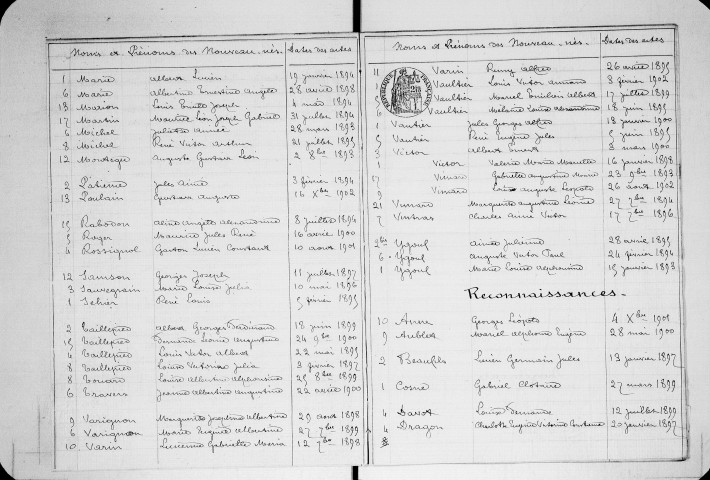 Noms et Prénoms des Nouveau-nés. Dates des actes
1 Marie Albert Lucien 19 janvier 1894
6 Marie Albertine Ernestine Angèle 28 avril 1898
13 Marion Louis Joseph 4 mai 1894
17 Martin Maurice Léon Joseph Gabriel 31 juillet 1894
6 Michel Juliette Aimée 28 mars 1893
8 Michel René Victor Arthur 21 juillet 1895
12 Montaigu Auguste Gustave Léon 2 8bre 1893
2 Jules Aimé 3 février 1894
13 Poulain Gustave Auguste 16 Xbre 1902
15 Rabodon Aline Angèle Alexandrine 8 juillet 1894
5 Roger Maurice Jules René 16 avril 1900
4 Rossignol Gaston Lucien Constant 10 août 1901
12 Samson Georges Joseph 11 juillet 1897
3 Sauvegrain Marie Louise Julia 10 mai 1896
1 René Louis 5 février 1895
2 Taillepied Albert Georges Ferdinand 18 juin 1899
15 Taillepied Fernand Léonce Augustine 24 9bre 1900
4 Taillepied Louis Victor Albert 22 mai 1895
8 Taillepied Louise Victorine Julia 3 février 1897
8 Touard Louise Albertine Alphonsine 25 8bre 1899
6 Travers Jeanne Albertine Augustine 22 avril 1900
9 Varignon Marguerite Joséphine Albertine 29 août 1898
6 Varignon Marie Eugénie Albertine 27 7bre 1899
10 Varin Lucienne Gabrielle Maria 12 7bre 1898
Noms et Prénoms des Nouveau-nés. Dates des actes
11 Varin Rémy Alfred 26 avril 1895
1 Vaultier Louis Victor Armand 8 février 1902
5 Vaultier Marcel Emilien Albert 17 juillet 1899
6 Vaultier Mélanie Louise Alexandrine 18 juin 1895
1 Vautier Jules Georges Alfred 18 janvier 1900
5 Vautier René Eugène Jules 5 juin 1895
3 Victor Albert Ernest 3 mars 1900
1 Victor Valérie Marie Marcelle 16 janvier 1898
17 Gabrielle Augustine Marie 23 9bre 1893
9 Louis Auguste Léopold 26 août 1902
21 Marguerite Augustine Léonie 27 7bre 1894
7 Vintras Charles Aimé Victor 17 7bre 1896
Ygouf Aimée Julienne 28 avril 1895
6 Ygouf Auguste Victor Paul 24 février 1896
1 Ygouf Marie Louise 15 janvier 1893
Reconnaissances.
10 Anne Georges Léopold 4 Xbre 1901
9 Aublet Marcel Alphonse Eugène 28 mai 1900
2 Beaufils Lucien Germain Jules 13 janvier 1897
1 Cosne Gabriel Clotaire 27 mars 1899
4 Davot Louise Fernande 12 juillet 1899
4 Dragon Charlotte Eugénie Victorine 20 janvier 1897
RÉPUBLIQUE FRANÇAISE